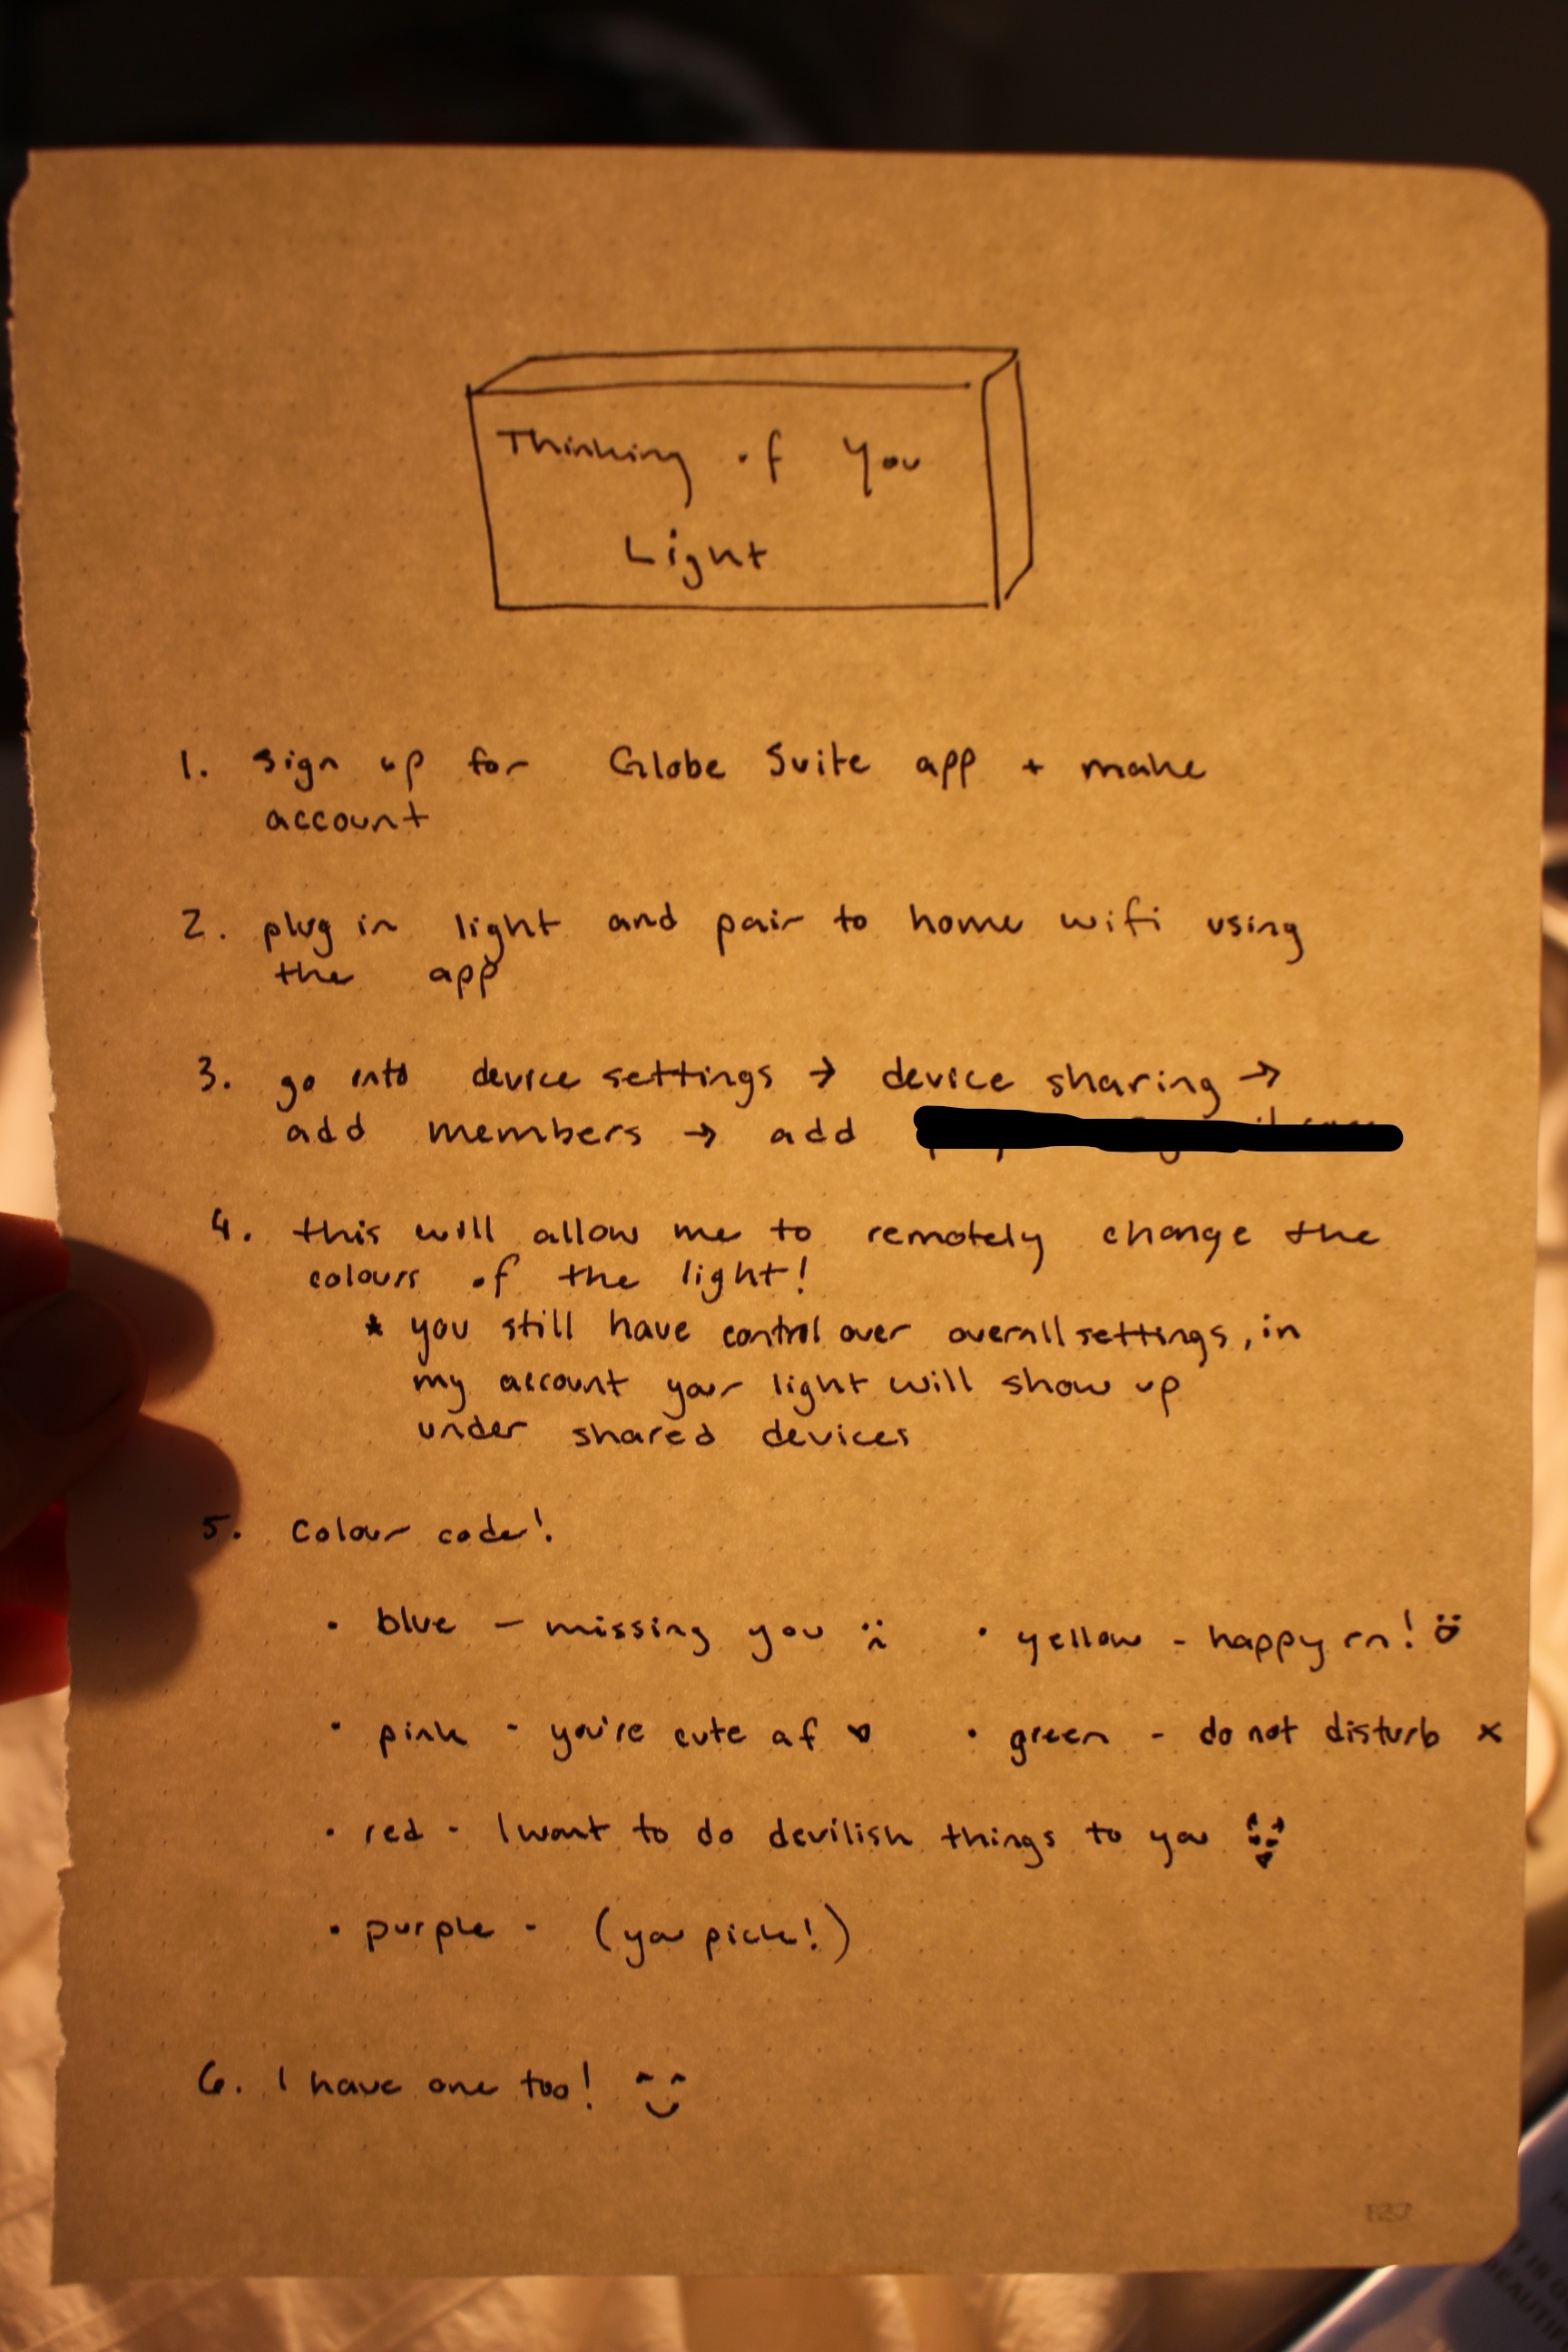 Thinking of You
Light
1. Sign up for Globe Suite app + make
account
2. plug in light and pair to home wifi using
the app
3. go into device settings → device sharing →
add members → add
4. this will allow me to remotely change the
colours of the light!
* you still have control over overall settings, in
my account your light will show up
under shared devices
5. Colour code!
• blue - missing you :(
• yellow - happy rn! :D
• pink - you're cute af ♥
• green - do not disturb x
• red - I want to do devilish things to you
• purple - (you pick!)
6. I have one too! ^‿^